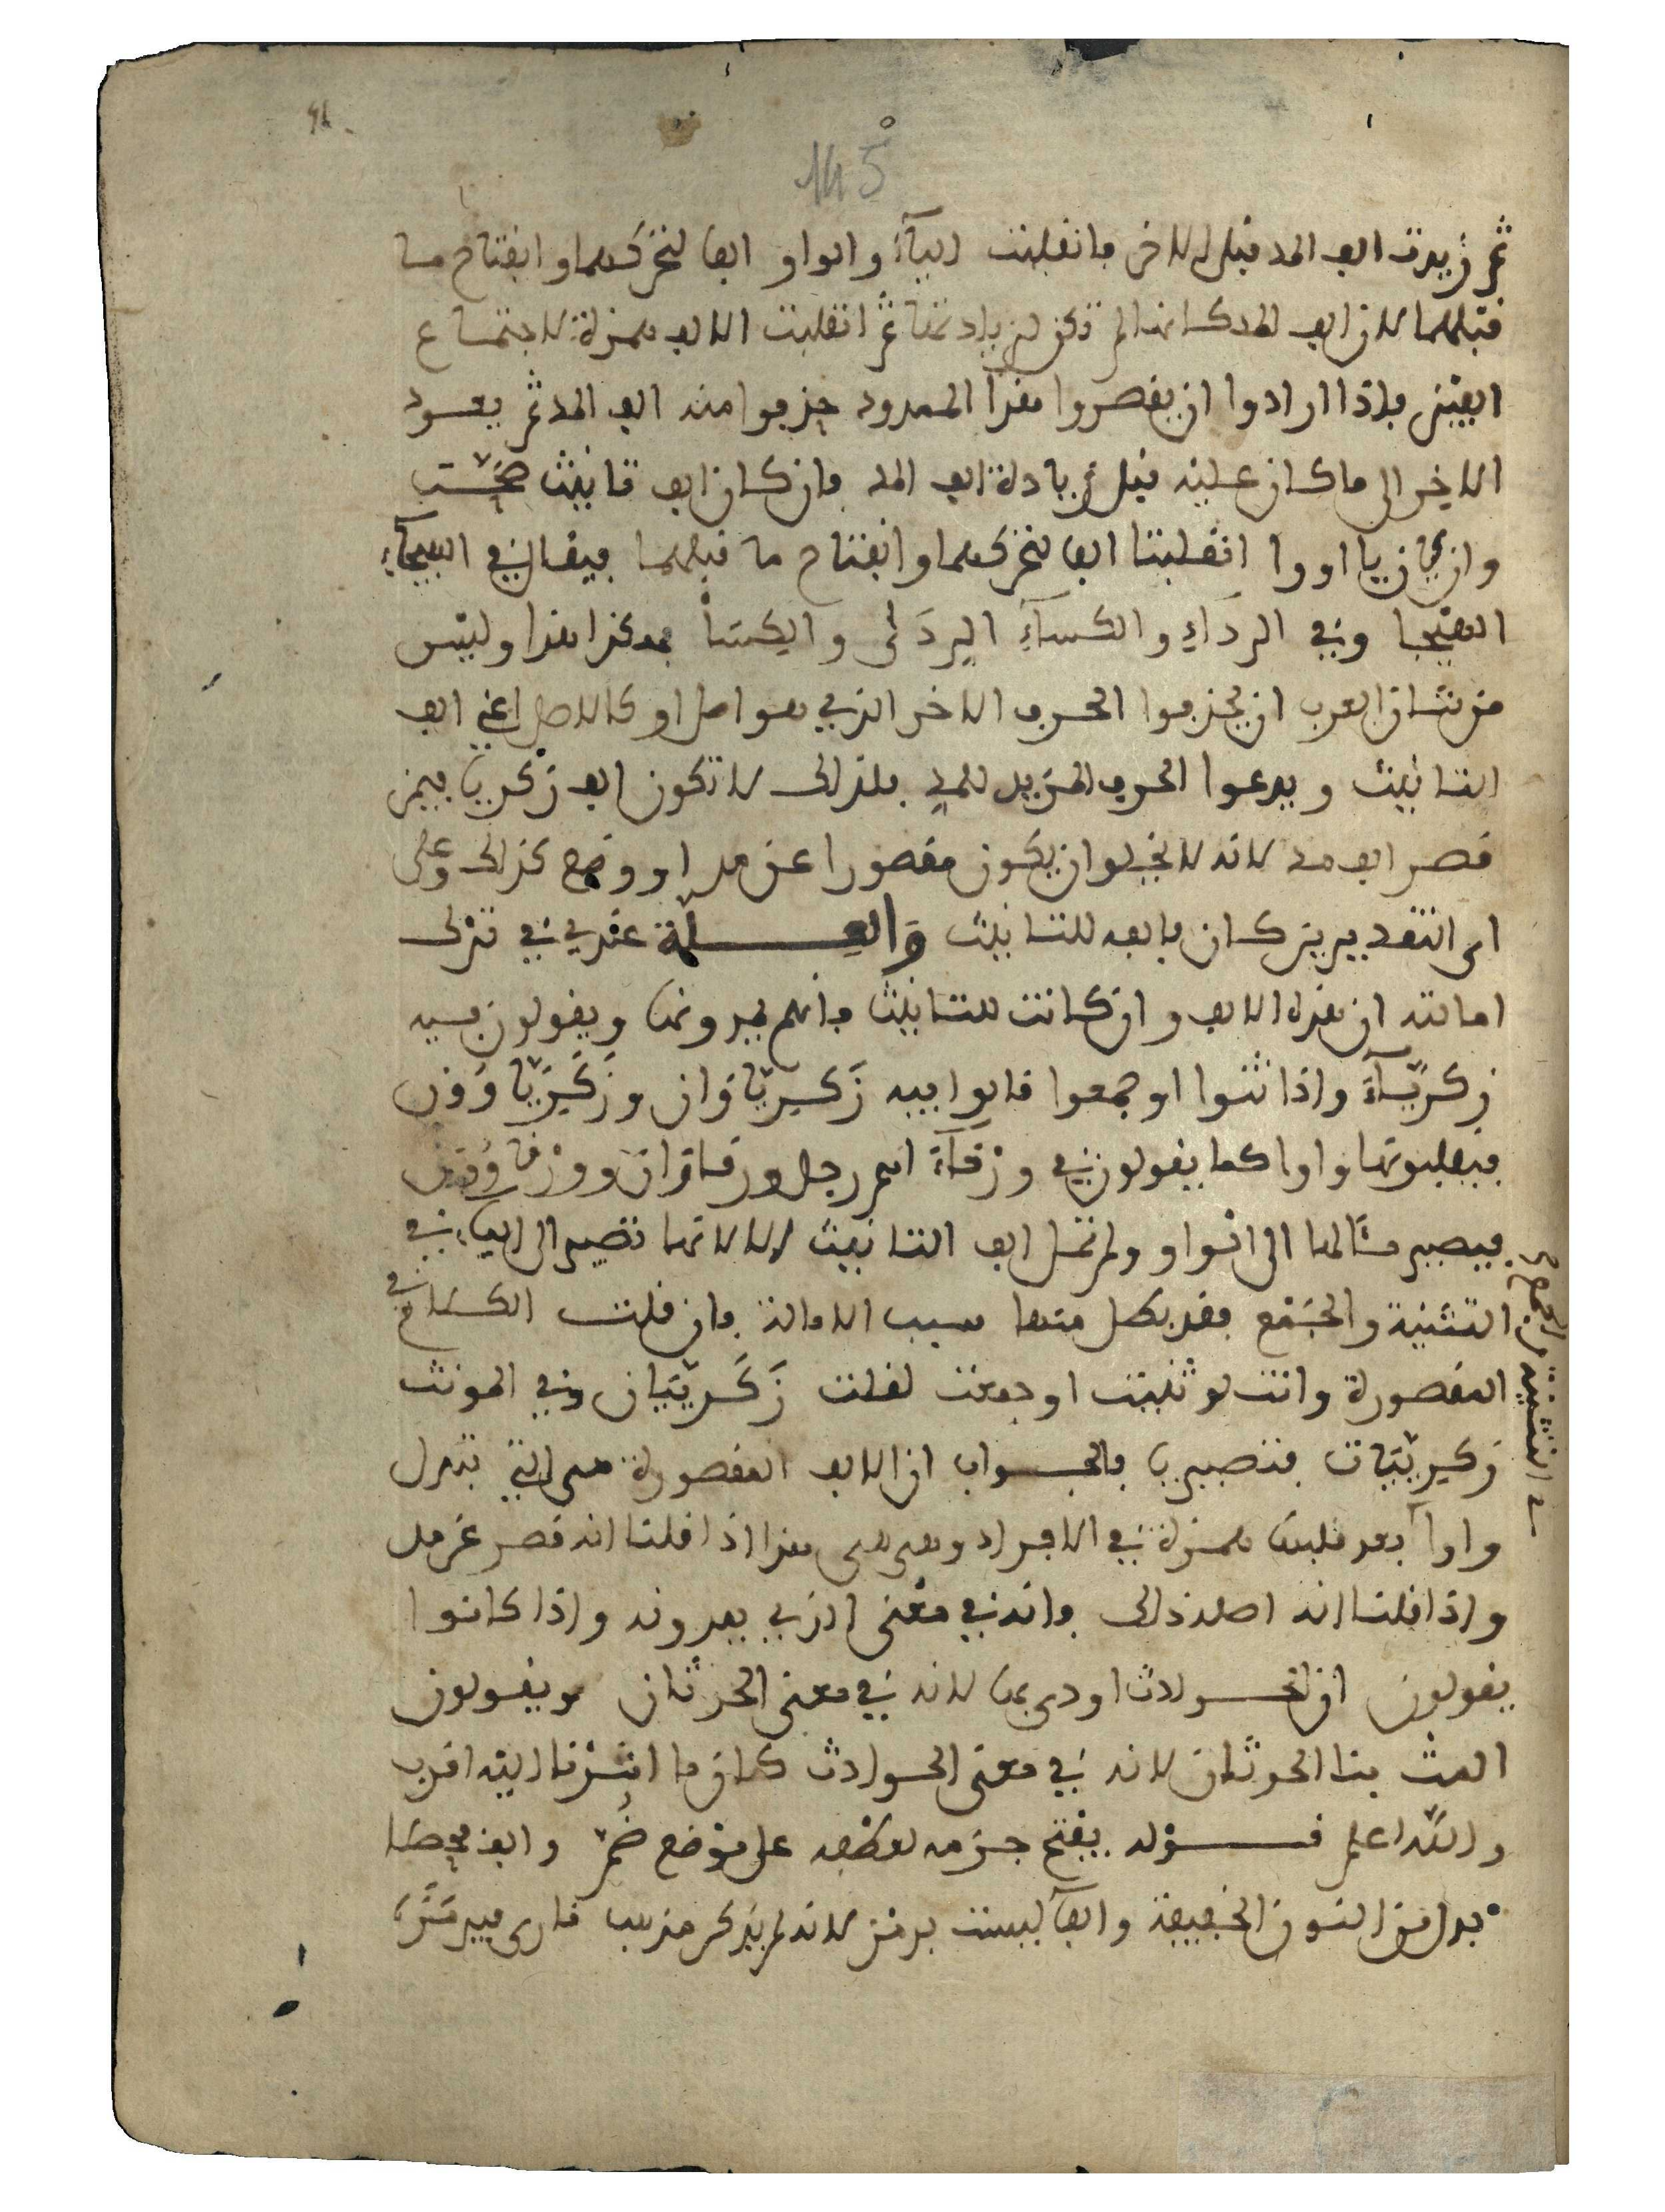 145
ثم زيدت الف المد قبل الاخر فانقلبت الياء والواو الفا لتحركهما وانفتاح ما
قبلهما لان الف المد كانها لم تكن لزيادتها ثم انقلبت الالف همزة لاجتماع
الفين فاذا ارادوا ان يقصروا هذا الممدود حذفوا منه الف المد ثم يعود
الاخير الى ما كان عليه قبل زيادة الف المد فان كان الف تانيث صحت
وان كان يا او واوا انقلبتا الفا لتحركهما وانفتاح ما قبلهما فيقال في الهيجآء
الهيجا وفي الردآء والكسآء الردى والكسا هكذا هذا وليس
من شان العرب ان يحذفوا الحرف الاخر الذي هو اصل او كالاصل اعني الف
التانيث ويدعوا الحرف المزيد للمد فلذلك لا تكون الف زكريا فيمن
قصر الف مد لانه لا يخلو ان يكون مقصورا عن مد او وضع كذلك وعلى
اي التقديرين كان فالفه للتانيث والعلة عندي في ترك
امالته ان هذه الالف وان كانت للتانيث فانهم يمدونها ويقولون فيه
زكريآء واذا ثنوا او جمعوا قالوا فيه زكرياوان وزكرياوون
فيقلبونها واوا كما يقولون في ورقآء اسم رجل ورقاوان وورقاوون
فيصير مثالها الى الواو ولم تمل الف التانيث الا لانها تصير الى الياء في
التثنية والجمع فقد بطل منها سبب الامالة فان قلت الكلام في
المقصورة وانت لو ثنيت او جمعت لقلت زكرييان وفي المونث
زكرييات فتصير يا فالجواب ان الالف المقصورة هي التي تبدل
واوا بعد قلبها همزة في الافراد وهي هي هذا اذا قلنا انه قصر عن مد
واذا قلنا ان اصله ذلك فانه في معنى الذي يمدونه واذا كانوا
يقولون ان الحوادث اودى بها لانه في معنى الحدثان ويقولون
المت بنا الحدثان لانه في معنى الحوادث كان ما اشرنا اليه اقرب
والله اعلم قوله يفتح جزمه لعطفه على موضع ضم والف
بدل من النون الخفيفة والفا ليست برمز لانه لم يذكر مذهب قارى فيه
في التثنية والجمع صح